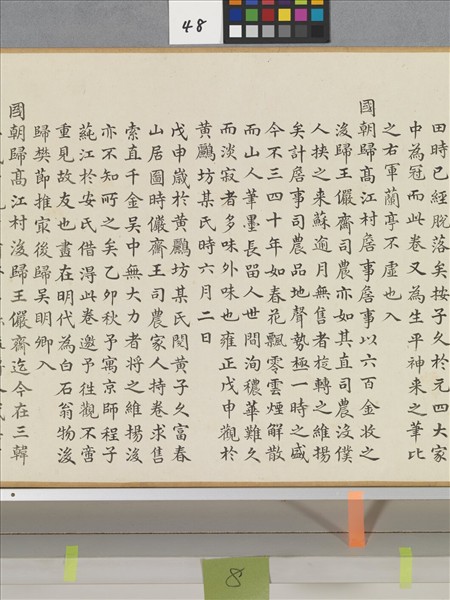 48
田時已經脫落矣按子久於元四大家
中為冠而此卷又為生平神来之筆比
之右軍蘭亭不虛也入
國朝歸髙江村詹事詹事以六百金收之
後歸王儼齋司農亦如其直司農沒僕
人挾之来蘇逾月無售者旋轉之維揚
矣計詹事司農品地聲勢極一時之盛
今不三四十年如春花飄零雲煙解散
而山人筆墨長留人世間洵穠華難久
而淡寂者多味外味也雍正戊申觀於
黃鸝坊某氏時六月二日
戊申歲於黃鸝坊某氏閱黃子久富春
山居圖時儼齋王司農家人持卷求售
索直千金吴中無大力者將之維揚後
亦不知所之矣乙卯秋予寓京師程子
蒓江於安氏借得此卷邀予往觀不啻
重見故友也畫在明代為白石翁物後
歸樊節推家後歸吴明卿入
國朝歸髙江村後歸王儼齋迄今在三韓
8